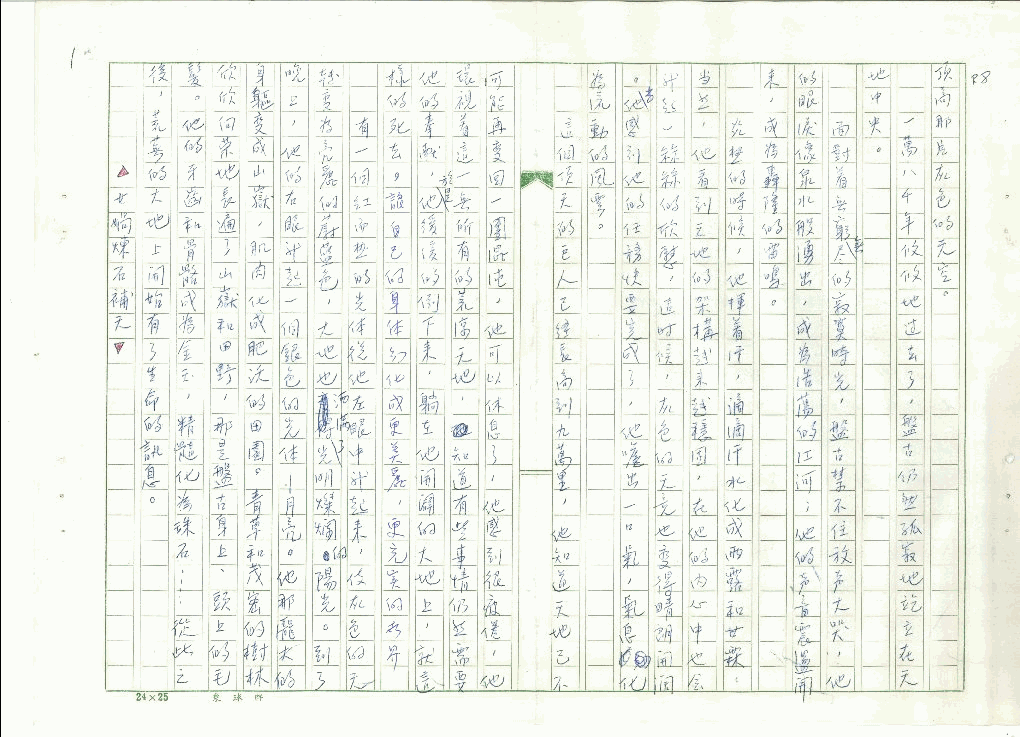 1
P8
頂高那片灰色的天空。
一萬八千年悠悠地过去了，盤古仍然孤寂地屹立在天
地中央。
面對着無窮無盡的寂寞時光，盤古禁不住放声大哭，他
的眼淚像泉水般湧出，成為浩蕩的江河；他的声音震盪開
來，成為轟隆的雷鳴。
炎熱的時候，他揮着汗，滴滴汗水化成雨露和甘霖。
当然，他看到天地的架構越來越穩固，在他的内心中也会
升起一絲絲的欣慰，這时候，灰色的天竟也變得晴朗開闊
。盤古感到他的任務快要完成了，他噓出一口氣，氣息化
為流動的風雲。
這個頂天的巨人已經長高到九萬里，他知道天地已不
可能再变回一團混沌，他可以休息了，他感到很疲倦，他
環視着這一無所有的荒涼天地，知道有些事情仍然需要
他的奉献，於是他缓缓的倒下来，躺在他開闢的大地上，就這
樣的死去。讓自己的身体幻化成更美麗，更充实的世界
有一個红而热的光体從他左眼中升起来，使灰色的天
就变為亮麗的蔚藍色，大地也洒满了光明燦爛的陽光。到了
晚上，他的右眼升起一個銀色的光体—月亮。他那龐大的
身軀变成山嶽，肌肉化成肥沃的田園。青草和茂密的樹林
欣欣向荣地長遍了山嶽和田野，那是盤古身上、頭上的毛
髮。他的牙齒和骨骼成為金玉，精髓化為珠石……從此之
後，荒蕪的大地上開始有了生命的訊息。
▲女媧煉石補天▼
24×25